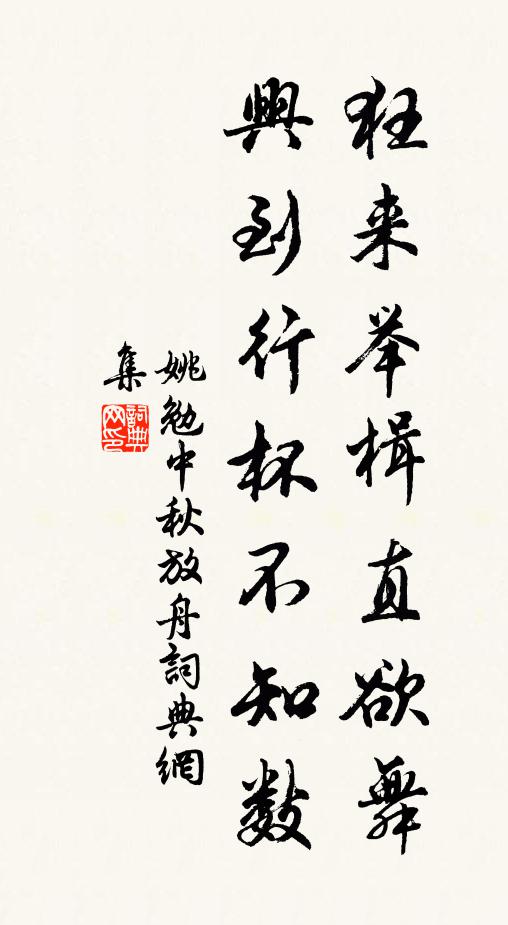 狂来举楫直欲舞
興到行杯不知数
姚勉中秋放舟詞典網
集
詞典网印